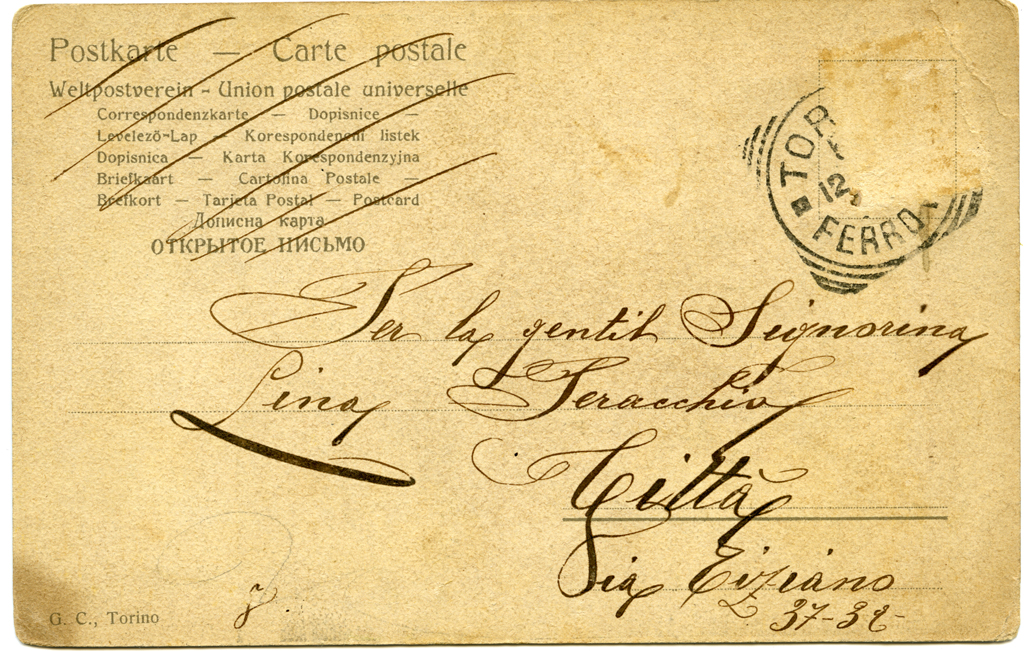 Postkarte — Carte postale
Weltpostverein - Union postale universelle
Correspondenzkarte — Dopisnice —
Levelező-Lap — Korespondenčni listek
Dopisnica — Karta Korespondenzyjna
Briefkaart — Cartolina Postale —
Brefkort — Tarjeta Postal — Postcard
Дописна карта
ОТКРЫТОЕ ПИСЬМО
TOR
12
FERRO
Per la gentil Signorina
Lina
Città
Via Tiziano
37-39-
G. C., Torino